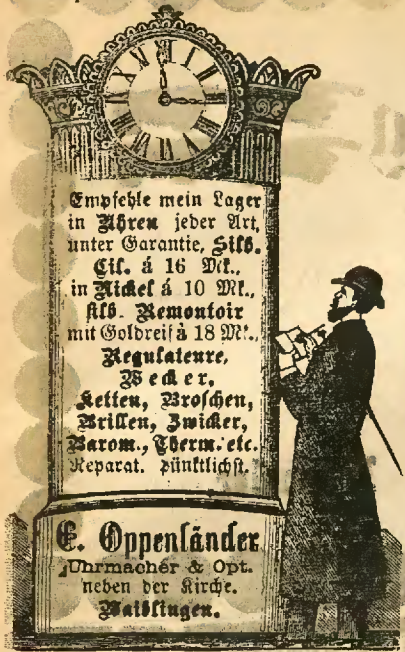 Empfehle mein Lager
in Uhren jeder Art,
unter Garantie, Silb.
Cil. á 16 Mk.,
in Nickel á 10 Mk.,
silb. Remontoir
mit Goldreif à 18 Mk.,
Regulateure,
Wecker,
Ketten, Broschen,
Brillen, Zwicker,
Barom., Therm. etc.
Reparat. pünktlichst.
E. Oppenländer
Uhrmacher & Opt.
neben der Kirche.
Waiblingen.